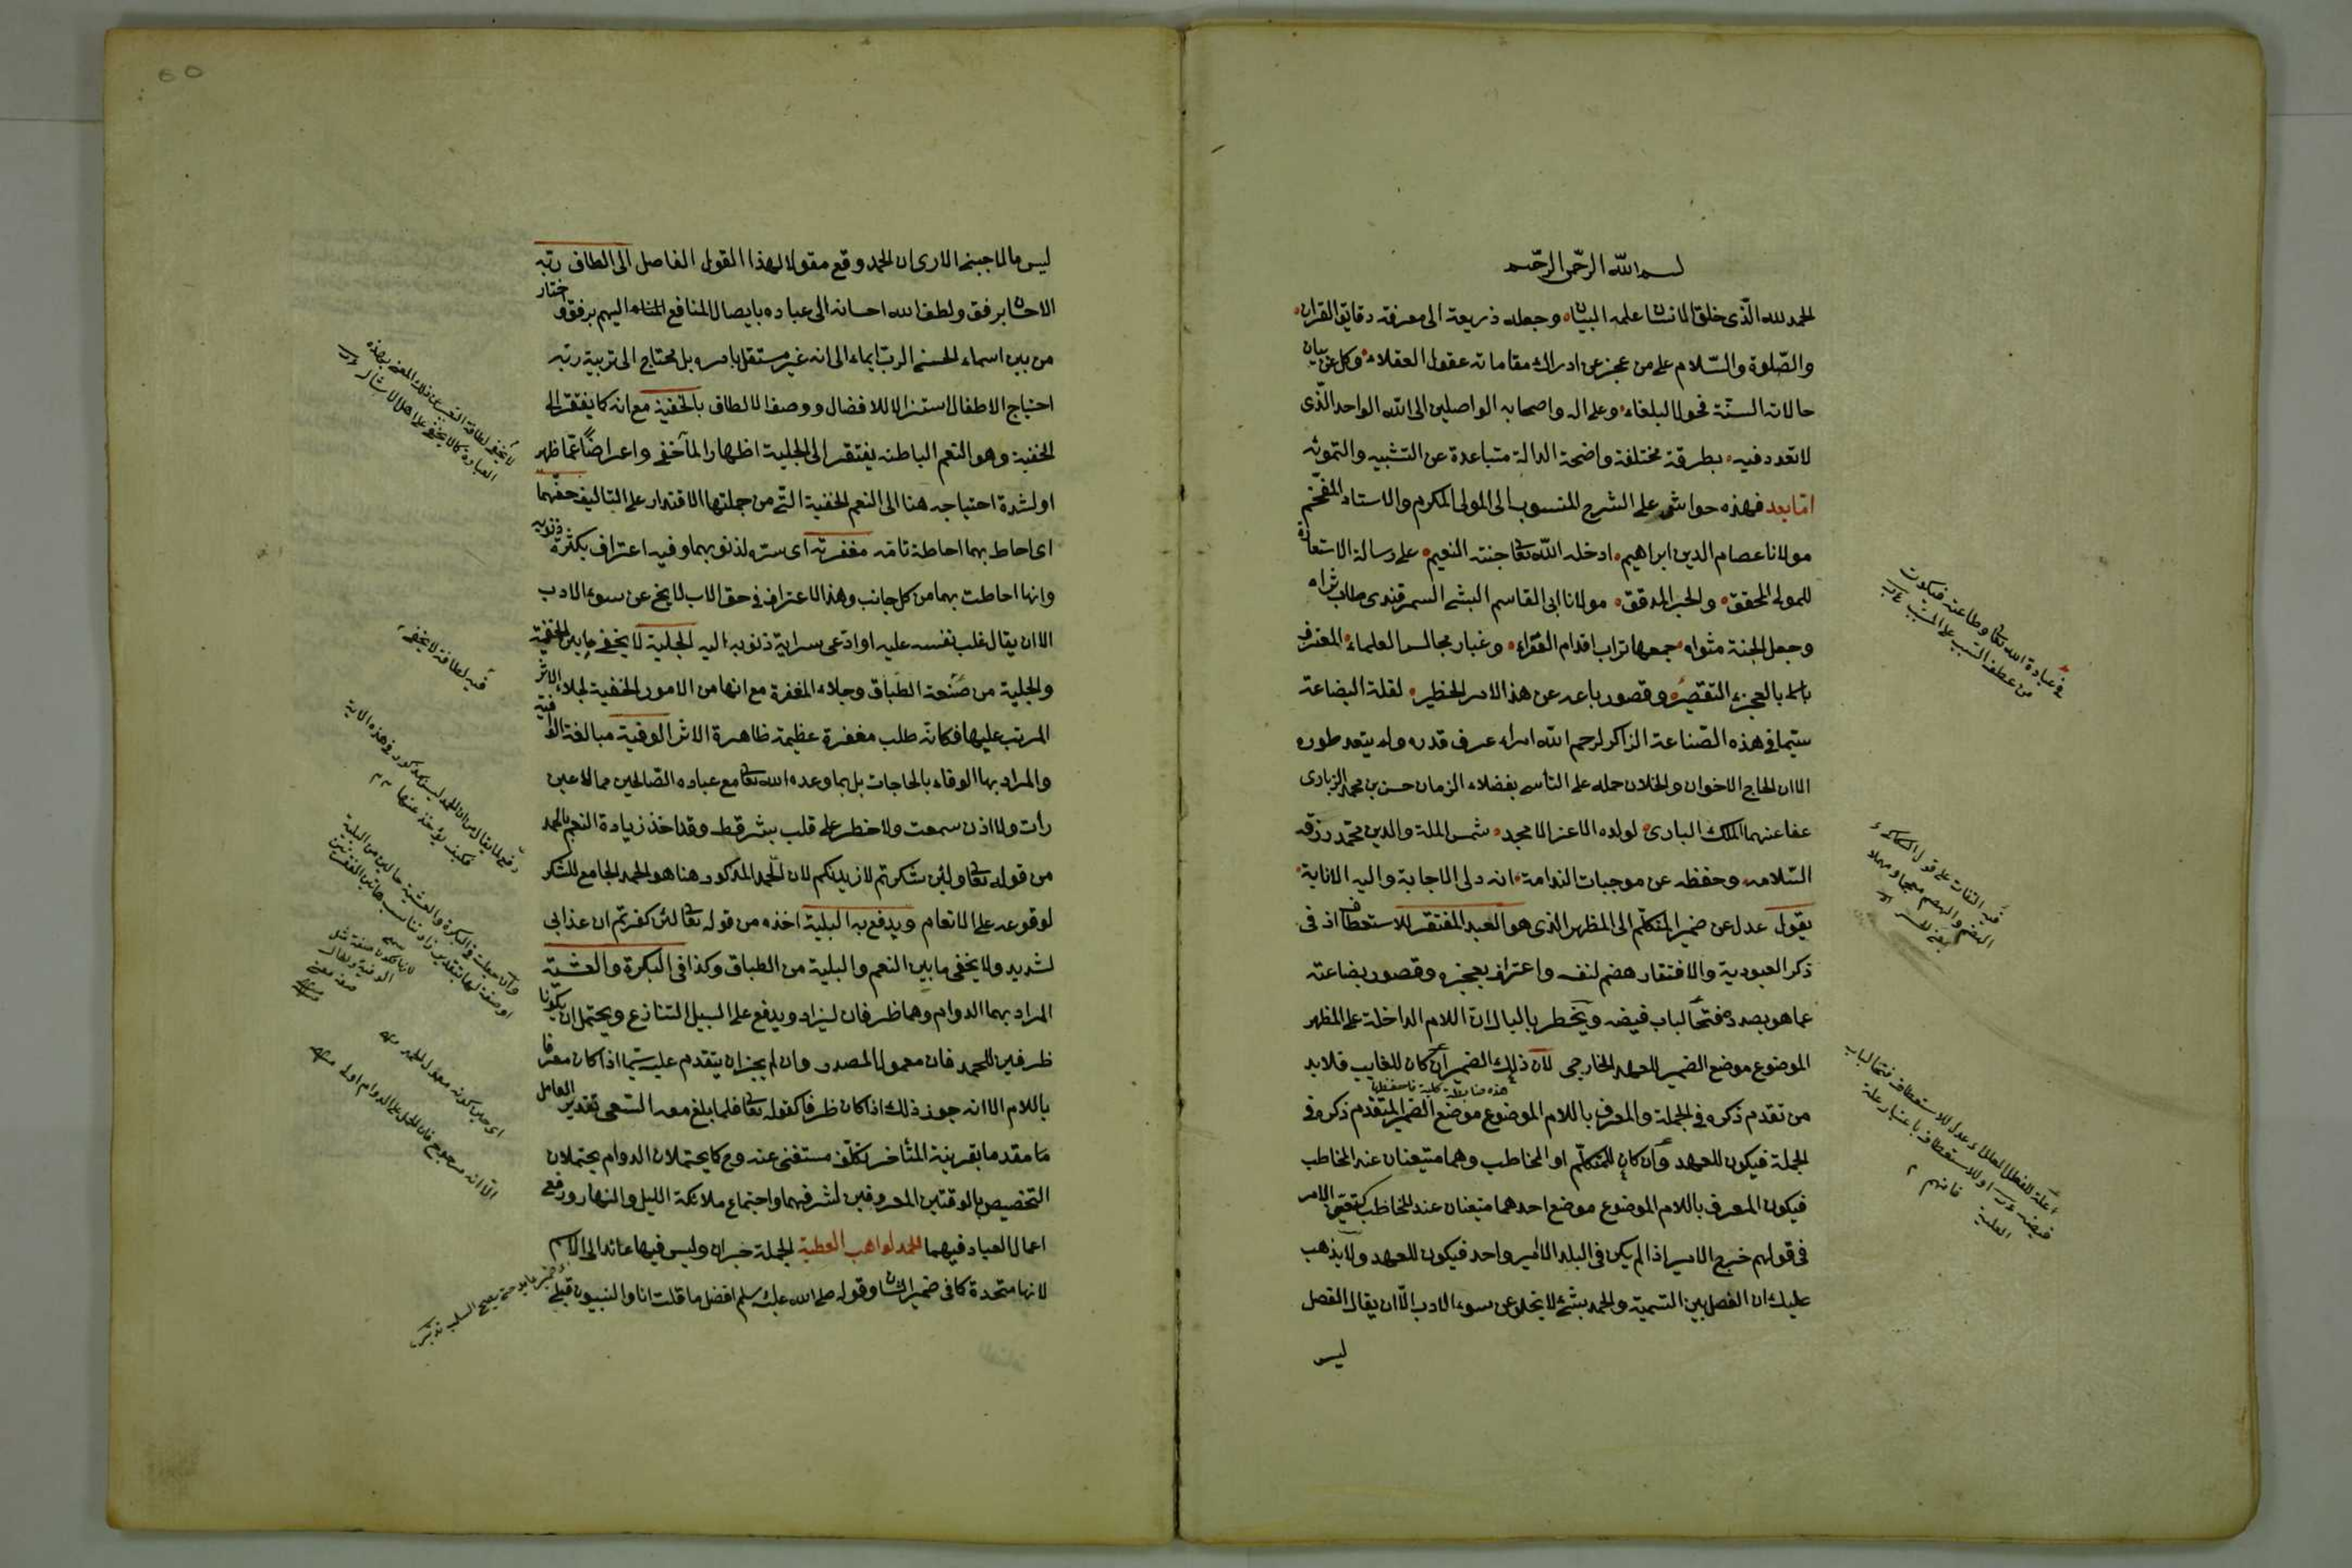 بسم الله الرحمن الرحيم
الحمد لله الذى خلق الانسان علمه البيان وجعله ذريعة الى معرفة دقايق القران
والصلوة والسلام على من عجز عن ادراك مقاماته عقول العقلاء وكل عن بيان
حالاته السنة فحول البلغاء وعلى اله واصحابه الواصلين الى الله الواحد الذى
لا تعدد فيه بطرقة مختلفة واضحة الدالة متباعدة عن التشبيه والتمويه
اما بعد فهذه حواشى على الشرح المنسوب الى المولى المكرم والاستاد المفخم
مولانا عصام الدين ابراهيم ادخله الله تعا جنته النعيم على رسالة الاستعارة
للمولى المحقق والحبر المدقق مولانا ابى القاسم الليثى السمرقندى طاب ثراه
وجعل الجنة مثواه جمعها تراب اقدام الفقراء وغبار مجالس العلماء المعترف
بالعجز والتقصير وقصور باعه عن هذا الامر الخطير لقلة البضاعة
سيما فى هذه الصناعة الذاكر لرحم الله امراء عرف قدره ولم يتعد طوره
الا ان الحاح الاخوان والخلان حمله على التأسى بفضلاء الزمان حسن بن محمد الزيبارى
عفا عنهما الملك البارى لولده الاعز الامجد شمس الملة والدين محمد رزقه
السلامه وحفظه عن موجبات الندامة انه ولى الاجابة واليه الانابة
يقول عدل عن ضمير المتكلم الى المظهر الذى هو العبد المفتقر للاستعطاف اذ فى
ذكر العبودية والافتقار هضم لنفسه واعتراف بعجزه وقصور بضاعته
عما هو بصدده فتحا لباب فيضه ويخطر بالبال ان اللام الداخلة على المظهر
الموضوع موضع الضمير للعهد الخارجى لان ذلك الضمير ان كان للغايب فلا بد
هذه ضابطة كلية فاحفظها
من تقدم ذكره فى الجملة والمعرف باللام الموضوع موضع الضمير المتقدم ذكره فى
الجملة فيكون للعهد وان كان للمتكلم او المخاطب وهما متيعنان عند المخاطب
فيكون المعرف باللام الموضوع موضع احدهما متيعنان عند المخاطب كتعين الامر
فى قولهم خرج الامير اذا لم يكن فى البلد الا امير واحد فيكون للعهد ولا يذهب
عليك ان الفصل بين التسمية والحمد بشئ لا يخلو عن سوء الادب الا ان يقال الفصل
ليس
فى عبادة الله تعا وطاعته فيكون
من عطف السبب على المسبب
ليس مالماجبنى الا رى ان الحمد وقع مقولا لهذا القول الفاصل الى الطاف ربه
الاحسان برفق ولطف الله احسانه الى عباده بايصال المنافع اليهم برفق واختار
من بين اسماء الحسنى الرب ايماء الى انه غير مستقل بامره بل محتاج الى تربية ربه
احتياج الاطفال استنزالا للافضال ووصف الالطاف بالخفية مع انه كما يفتقر الى
الخفية وهو النعم الباطنه يفتقر الى الجلية اظهارا لما خفى واعراضا عما ظهر
او لشدة احتياجه هنا الى النعم الخفية التى من جملتها الاقتدار على التاليف حفهما
اى احاط بهما احاطة تامه مغفرته اى ستره لذنوبهما وفيه اعتراف بكثرة ذنوبه
وانها احاطت بهما من كل جانب وهذا الاعتراف فى حق الاب لا يخ عن سوء الادب
الا ان يقال غلب نفسه عليه او ادعى سراية ذنوبه اليه الجلية لا يخفى ما بين الخفية
والجلية من صنعة الطباق وجلاء المغفرة مع انها من الامور الخفية لجلاء الاثر
المرتب عليها فكانه طلب مغفرة عظيمة ظاهرة الاثر الوفية مبالغة الوافية
والمراد بها الوفاء بالحاجات بل بما وعده الله تعا مع عباده الصالحين مما لا عين
رأت ولا اذن سمعت ولا خطر على قلب بشر قط وقد اخذ زيادة النعم بالحمد
من قوله تعا ولئن شكرتم لازيدنكم لان الحمد المذكور هنا هو الحمد الجامع للشكر
لوقوعه على الانعام ويدفع به البلية اخذه من قوله تعا لئن كفرتم ان عذابى
لشديد ولا يخفى ما بين النعم والبلية من الطباق وكذا فى البكرة والعشية
المراد بهما الدوام وهما ظرفان ليزاد ويدفع على السبيل التنازع ويحتمل ان يكونا
ظرفين للحمد فان معمول المصدر وان لم يجز ان يتقدم عليه سيما اذا كان معرفا
باللام الا انه جوز ذلك اذا كان ظرفا كقوله تعا فلما بلغ معه السعى تقدير العامل
مقدما بقرينة المتأخر تكلف مستغنى عنه وح كما يحتملان الدوام يحتملان
التخصيص بالوقتين المعروفين لشرفهما واجتماع ملائكة الليل والنهار ورفع
اعمال العباد فيهما الحمد لواهب العطية الجملة خبر ان وليس فيها عائد الى الاسم
لانها متحدة كما فى ضمير الشان وقوله صلى الله عليه وسلم افضل ما قلت انا والنبيون قبلى
فيه لطافة لا يخفى